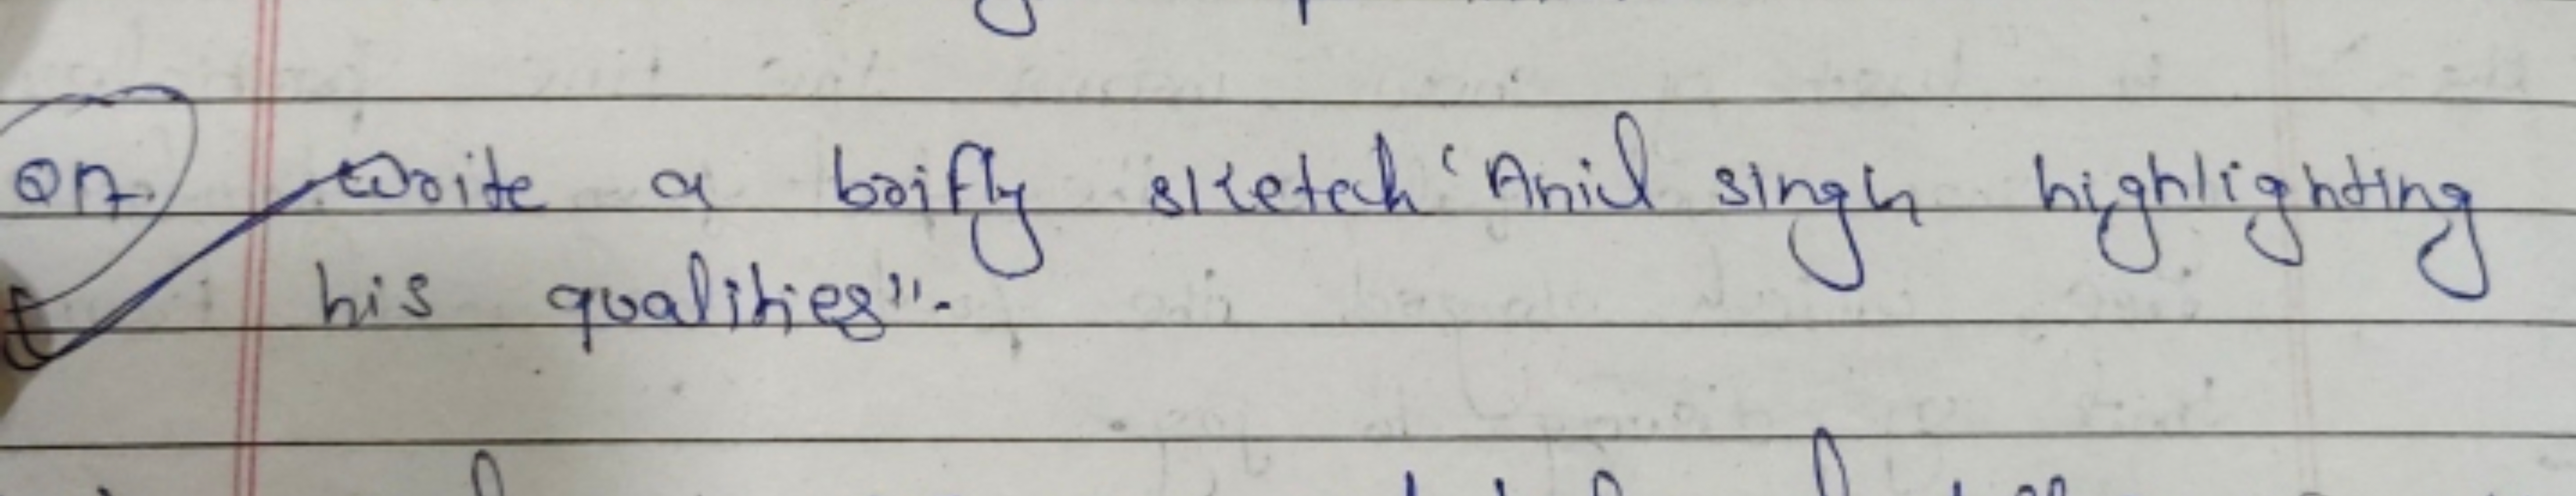 Q7. Write a boifly sketech 'Anil singh highlighting
his qualities".